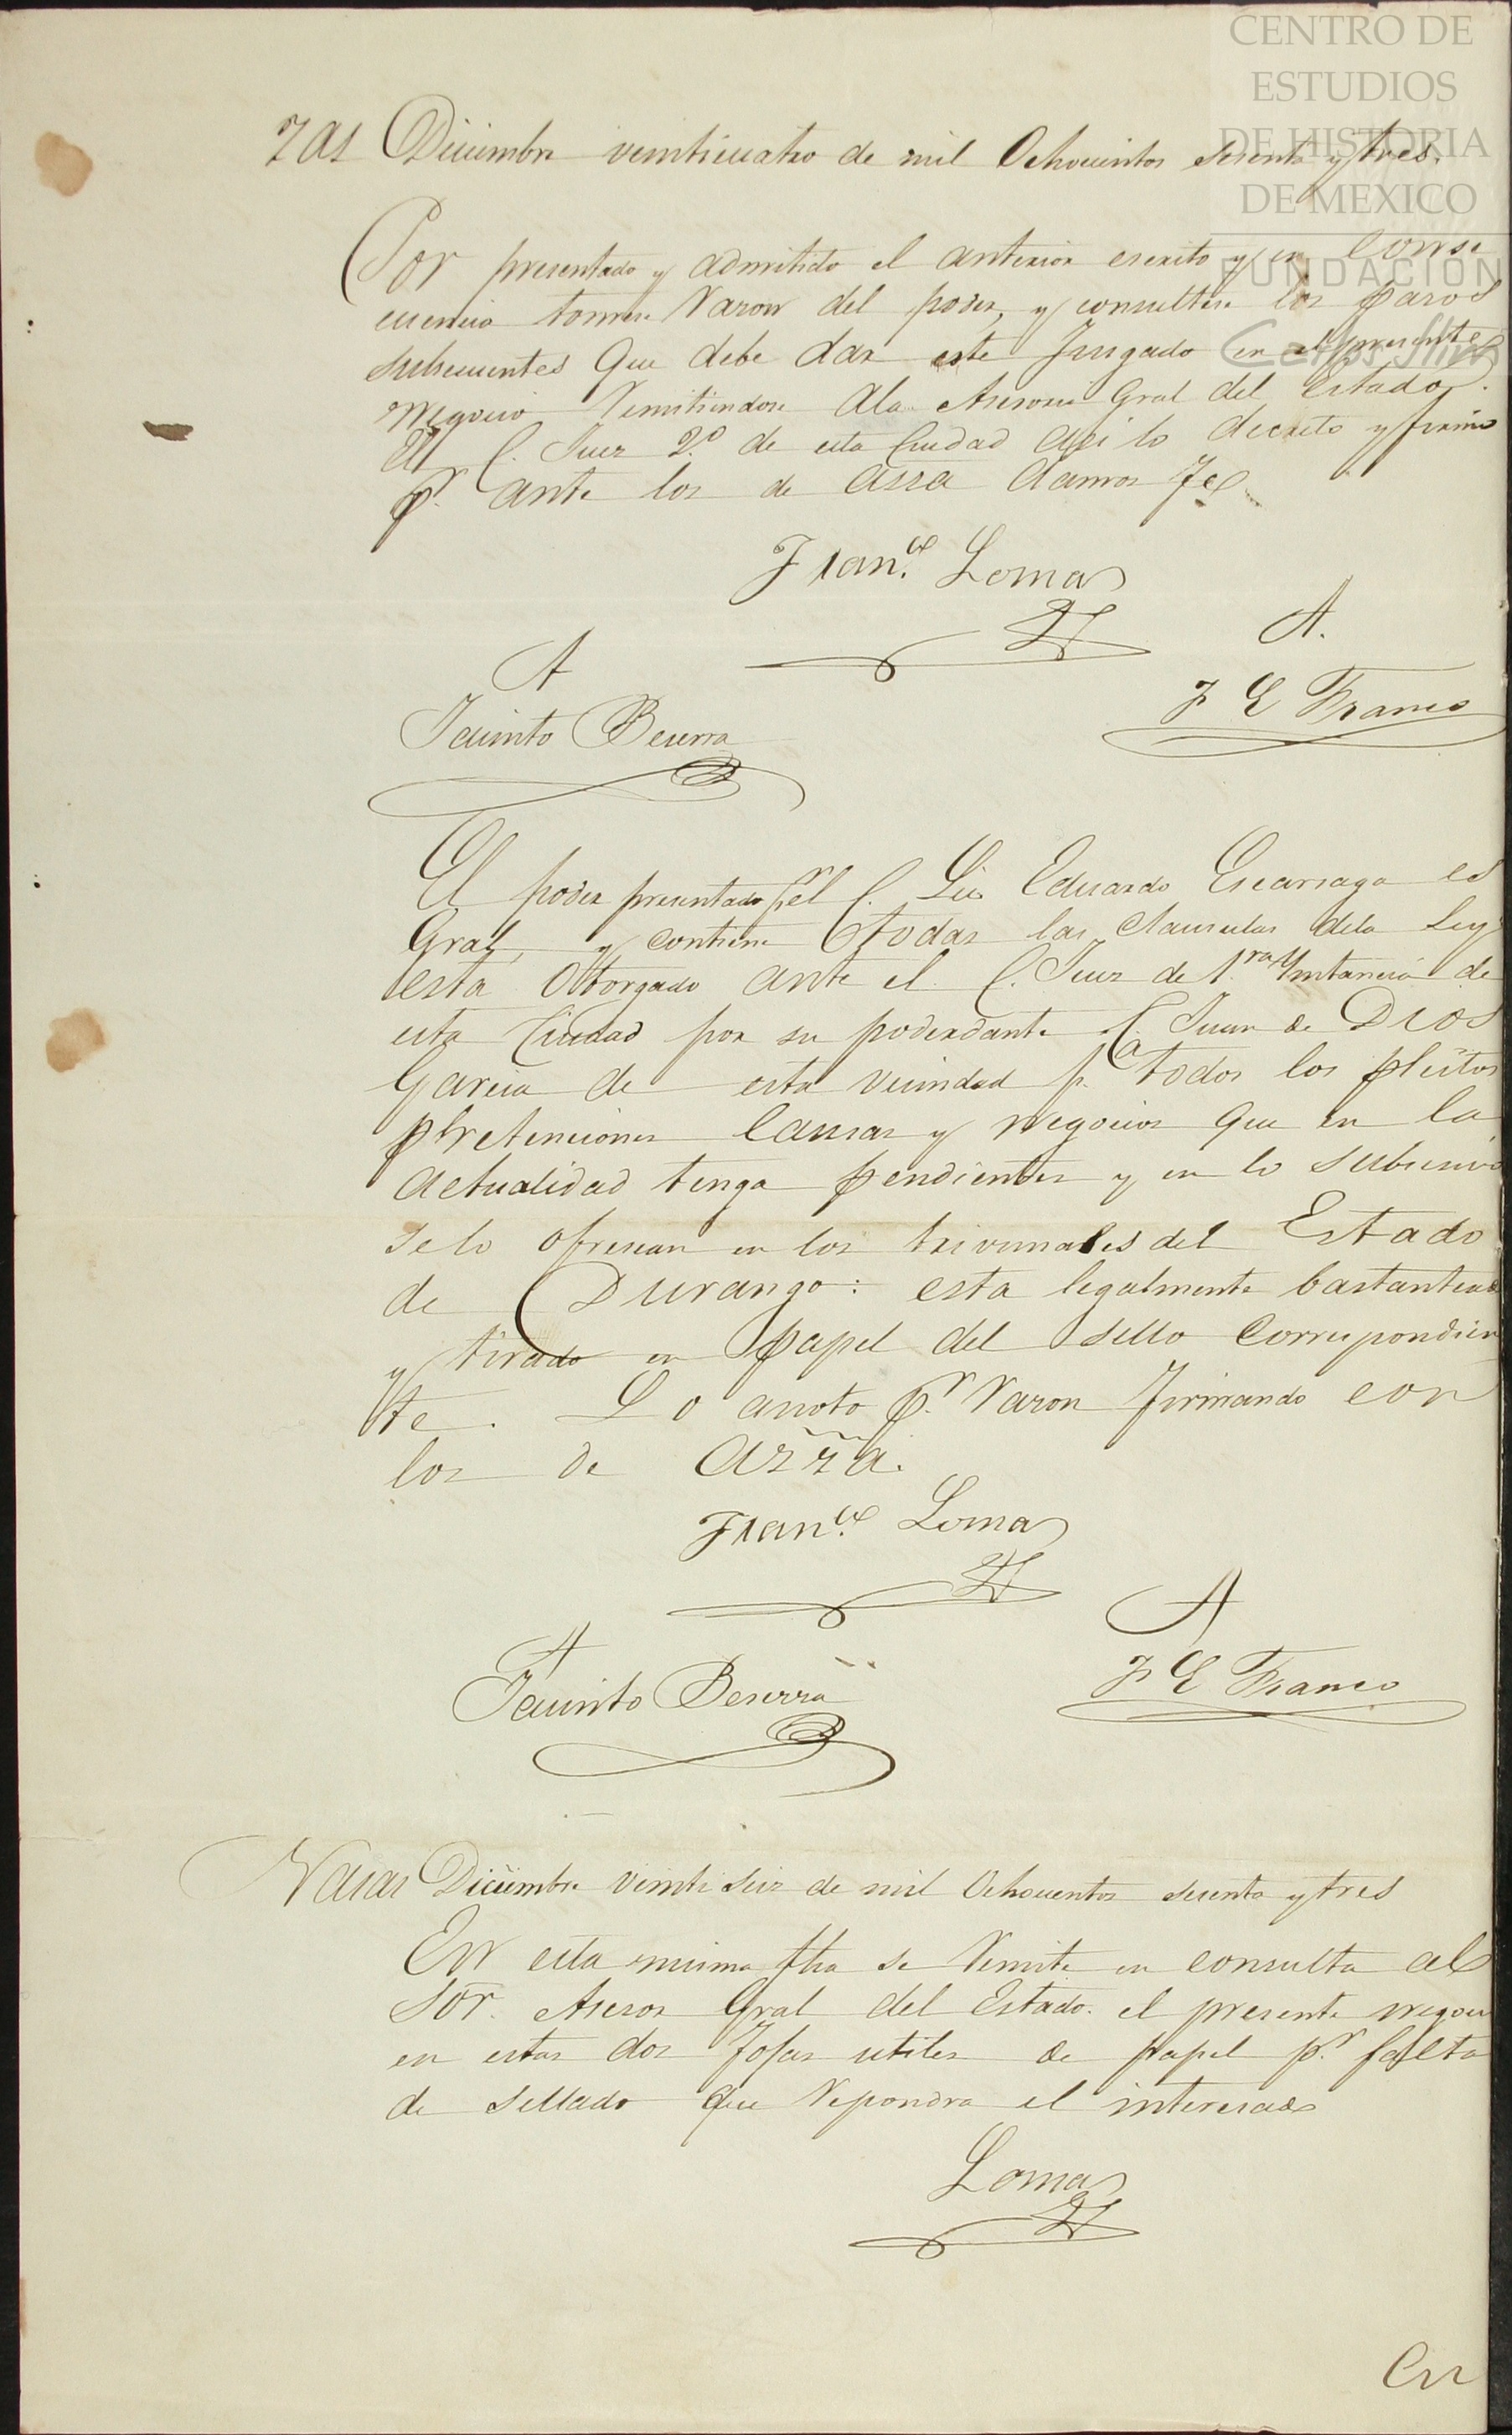 CENTRO DE
ESTUDIOS
DE HISTORIA
DE MEXICO
FUNDACIÓN
Carlos Slim
Diciembre veinticuatro de mil Ochocientos sesenta y tres.
Por presentado y admitido el anterior escrito y en conse
cuencia tomese Razon del poder, y consultese los pasos
subsecuentes que debe dar este Jusgado en el presente
negocio Remitiendose Ala Asesoria Gral del Estado.
El C. Juez 2.º de esta Ciudad asi lo decreto y firmó
p.r ante los de assa damos fe
Fran.co Lomas
A
A.
Jacinto Becerra
J E Franco
El poder presentado p.r el C. Lic Eduardo Escarsaga es
Gral, y contiene todas las clausulas dela Ley
esta Otorgado ante el C. Juez de 1.ra Ynstancia de
esta Ciudad por su poderdante C. Juan de Dios
Garcia de esta vecindad p.a todos los pleitos
pretenciones Causas y negocios que en la
actualidad tenga pendientes y en lo subcesivo
sele ofrescan en los trivunales del Estado
de Durango: esta legalmente bastanteado
y tirado en papel del sello correspondien
te. Lo anoto p.r Razon firmando con
los de assa.
Fran.co Lomas
A
A
Jacinto Beserra
J E Franco
Nasas Diciembre veinti seis de mil Ochocientos sesenta y tres
En esta misma fha se Remite en consulta al
Sor. Asesor Gral del Estado. el presente negocio
en estas dos fojas utiles de papel p.r falta
de sellado que Repondra el interesado
Lomas